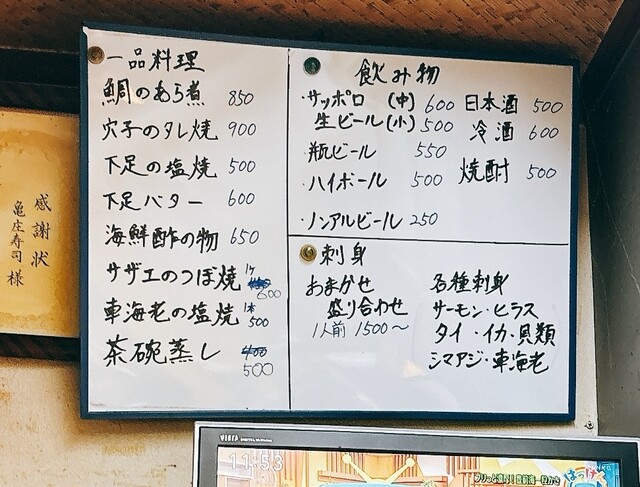 一品料理
鯛のあら煮 850
穴子のタレ焼 900
下足の塩焼 500
下足バター 600
海鮮酢の物 650
サザエのつぼ焼 1ケ 600
車海老の塩焼 1本 500
茶碗蒸し 400 500
飲み物
サッポロ生ビール (中) 600
(小) 500
瓶ビール 550
ハイボール 500
ノンアルビール 250
日本酒 500
冷酒 600
焼酎 500
刺身
おまかせ
盛り合わせ
1人前 1500〜
各種刺身
サーモン・ヒラス
タイ・イカ・貝類
シマアジ・車海老
感謝状
亀庄寿司 様
VIERA
11:53